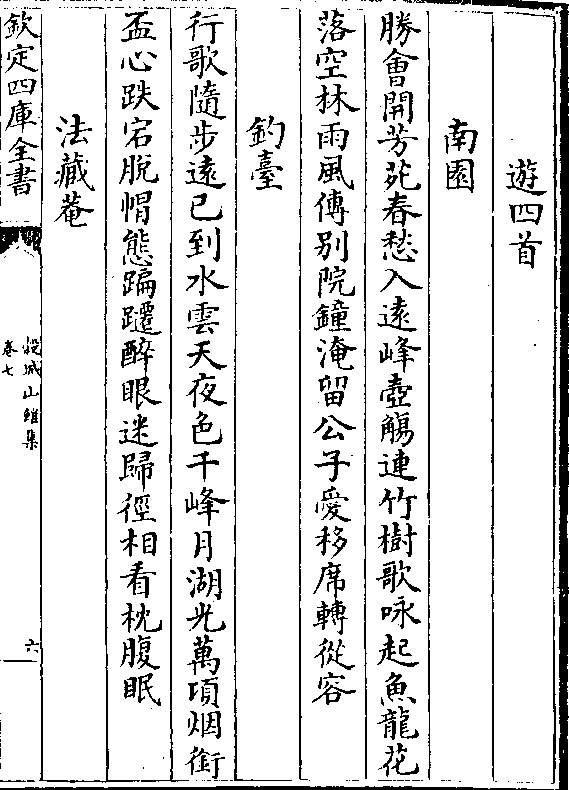 遊四首
南園
勝會開芳苑春愁入遠峰壺觴連竹樹歌咏起魚龍花
落空林雨風傳别院鐘淹留公子愛移席轉從容
釣臺
行歌隨步遠已到水雲天夜色千峰月湖光萬項烟銜
盃心跌宕脫帽態蹁躚醉眼迷歸徑相看枕腹眠
法藏菴
欽定四庫全書
糓城山館集
卷七
六